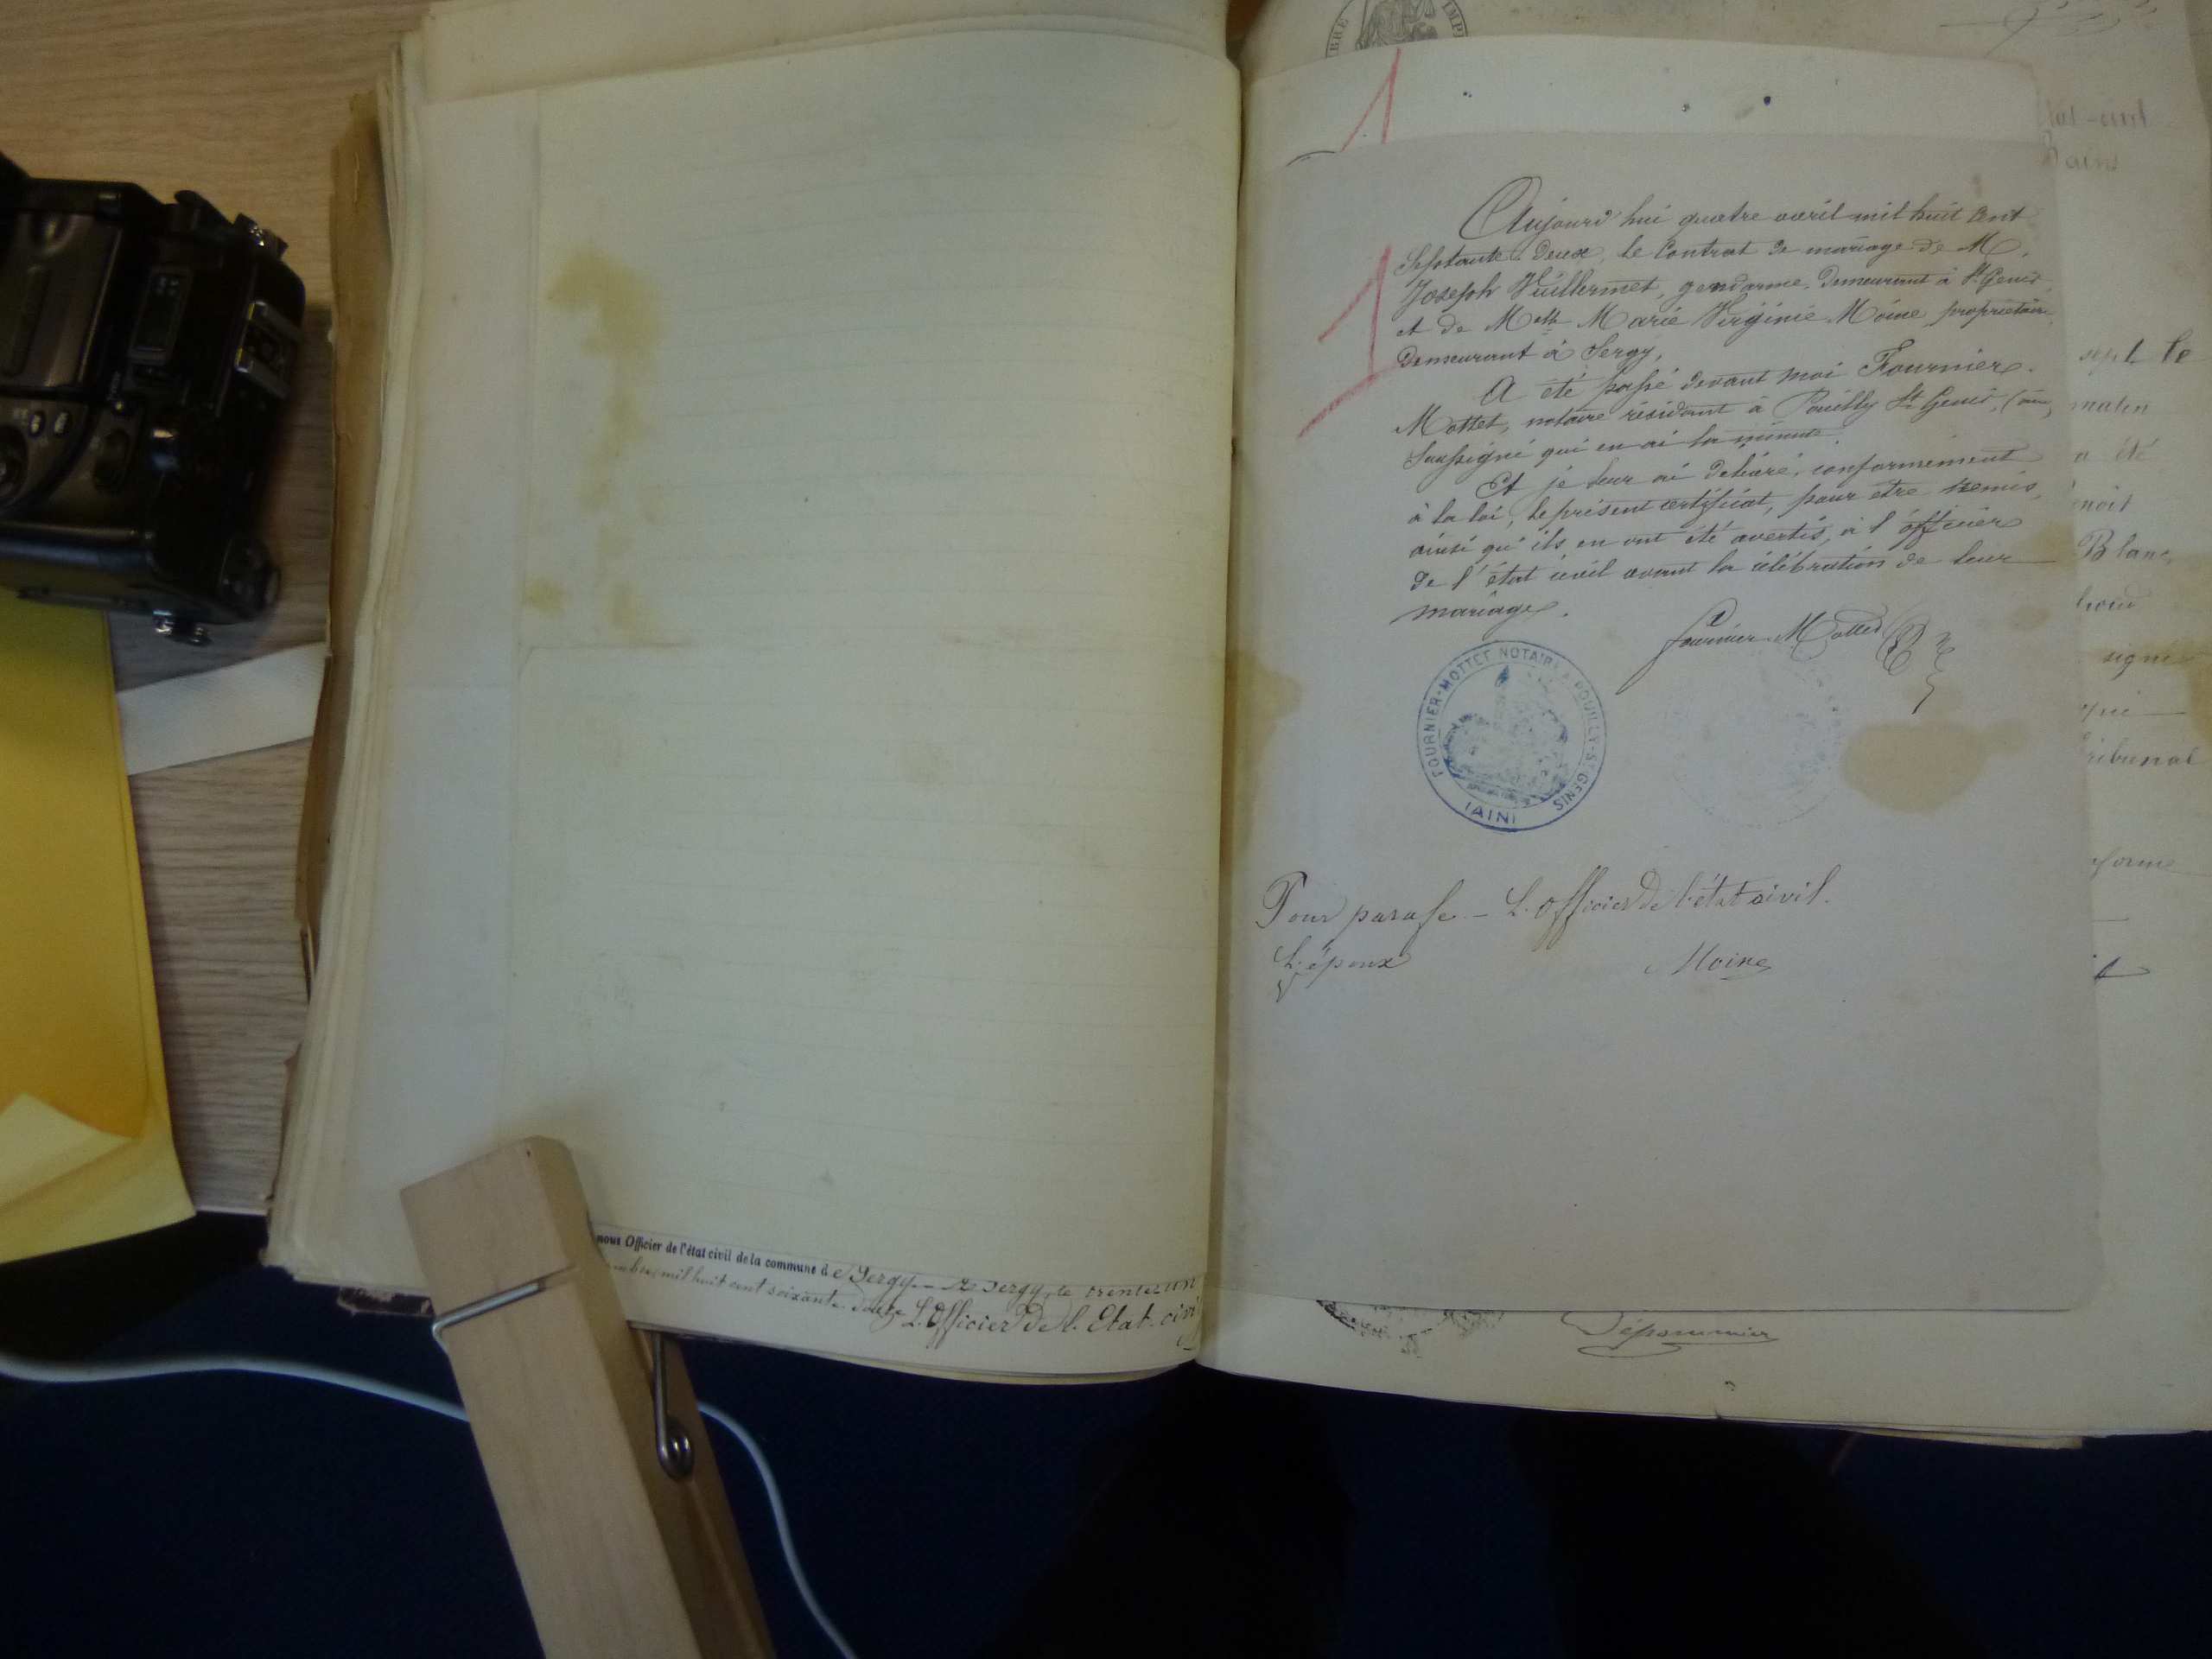 nous Officier de l'état civil de la commune d e Sergy. — A Sergy, le trente un
mil huit cent soixante douze
L'Officier de l'Etat-civi
BRE
IMP
1
Aujourd'hui quatre avril mil huit Cent
Septante Deux, le Contrat de mariage de M.
Joseph Vuillermet, gendarme, Demeurant à St Genis,
et de Melle Marie Virginie Moine propriétaire,
Demeurant à Sergy,
A été passé devant moi Fournier-
Mottet, notaire résidant à Pouilly St Genis, (ain,
Soussigné qui en ai la minute.
Et je leur ai délivré, conformément
à la loi, le présent certificat, pour être remis,
ainsi qu'ils en ont été avertis, à l'officier
de l'état civil avant la célébration de leur
mariage.
1
Fournier-Mottet
FOURNIER-MOTTET NOTAIRE A POUILLY-ST GENIS
(AIN)
Pour parafe. — L'Officier de l'état civil.
L'époux
Moine
Dépommier
sept le
matin
a été
Blanc,
signé
que
tribunal
forme